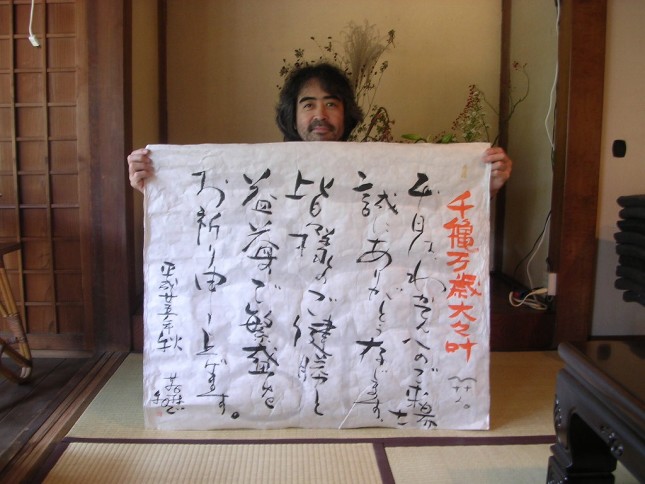 千穐万歳大々叶
へのご来場
誠にありがとう存じます。
皆様のご健勝と
益益のご繁盛を
お祈り申し上げます。
平成廿五年秋